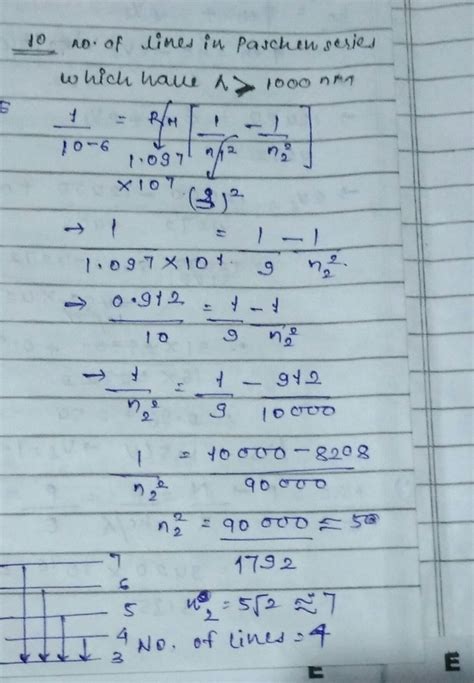 10 no. of lines in Paschen series
which have λ > 1000 nm
1/10-6 = RH [1/n1² - 1/n2²]
1.097 × 10⁷
(3)²
→ 1/1.097×10⁷ = 1/9 - 1/n2²
→ 0.912/10 = 1/9 - 1/n2²
→ 1/n2² = 1/9 - 912/10000
1/n2² = 10000-8208/90000
n2² = 90000/1792 ≈ 50
7
6
5
n2 = 5√2 ≈ 7
4
3
No. of lines = 4
E E